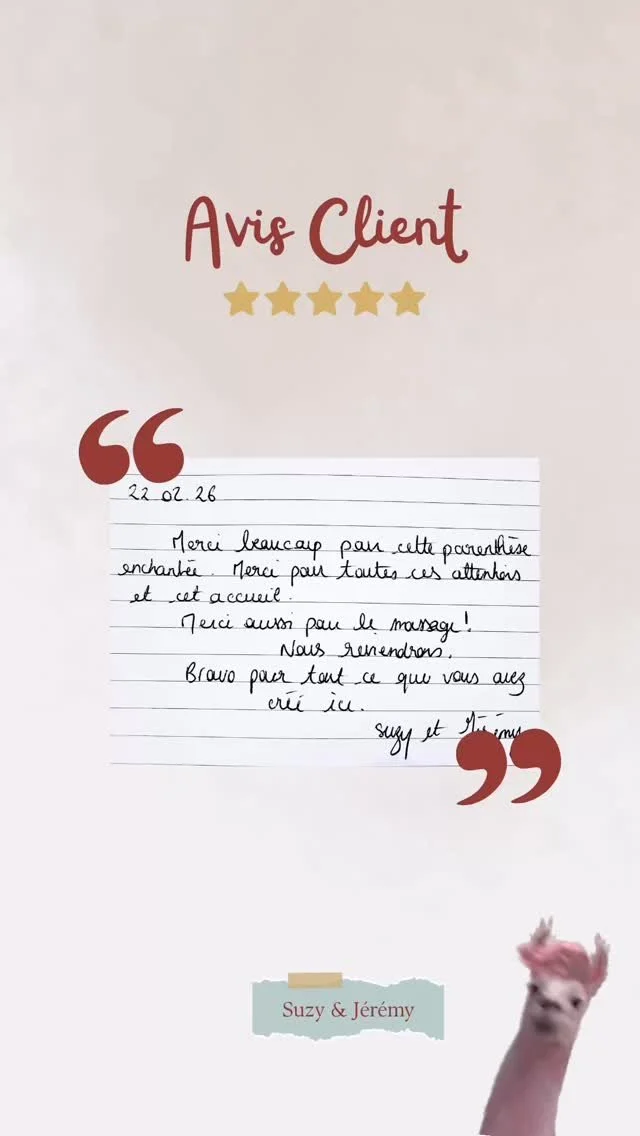 Avis Client
22 02. 26
Merci beaucoup pour cette parenthèse
enchantée. Merci pour toutes ces attentions
et cet accueil.
Merci aussi pour le massage!
Nous reviendrons.
Bravo pour tout ce que vous avez
créé ici.
Suzy et Jérémy
Suzy & Jérémy